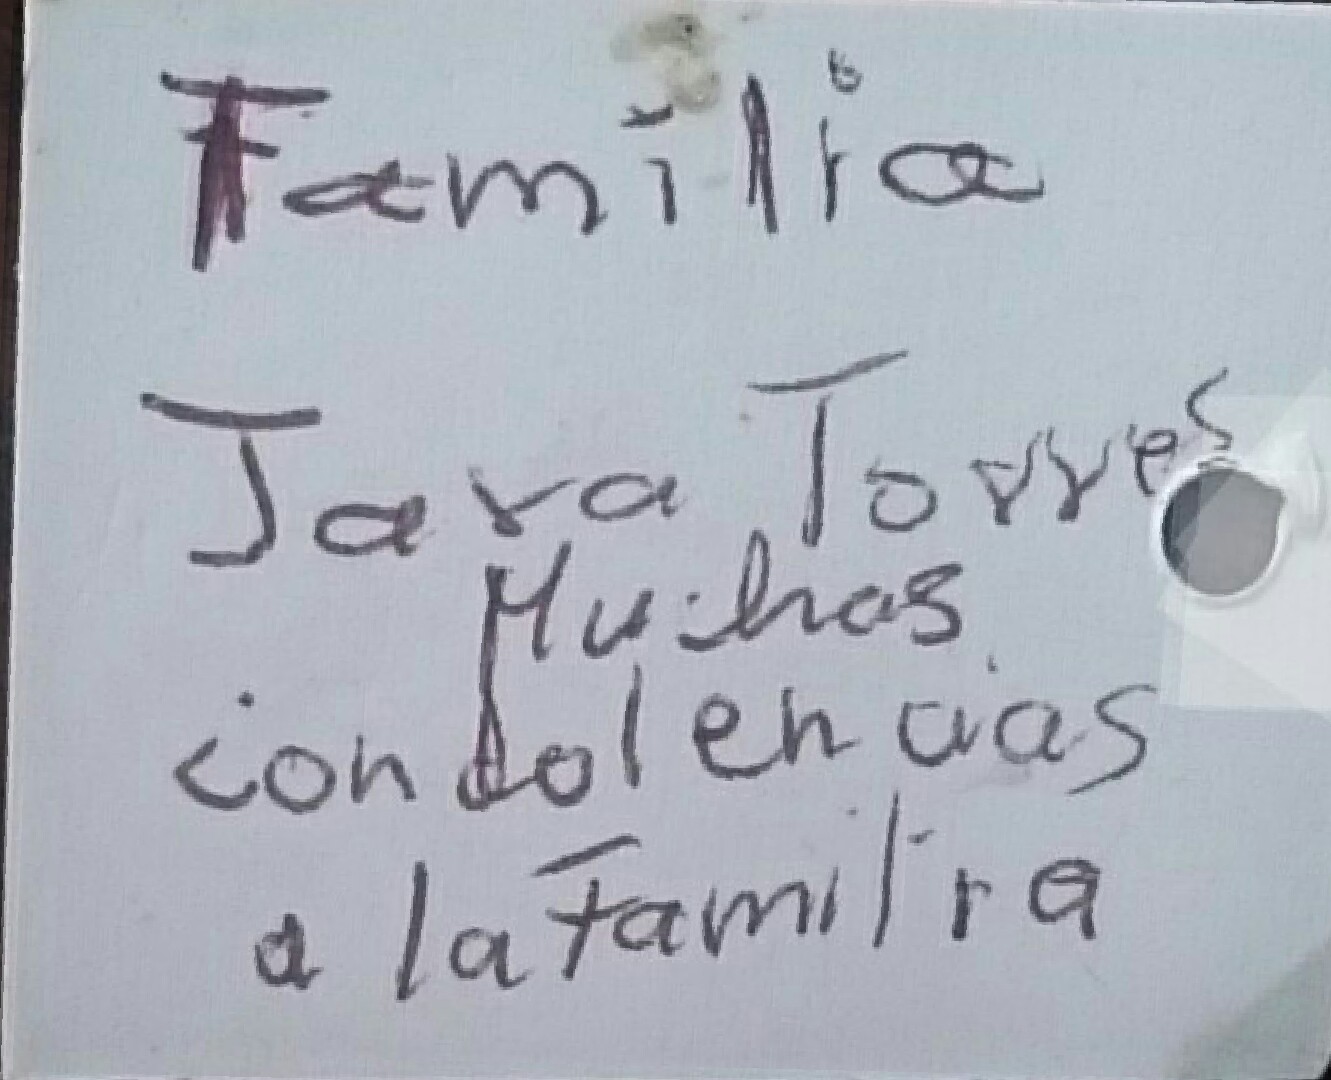 Familia
Jara Torres
Muchas
condolencias
a la Familia